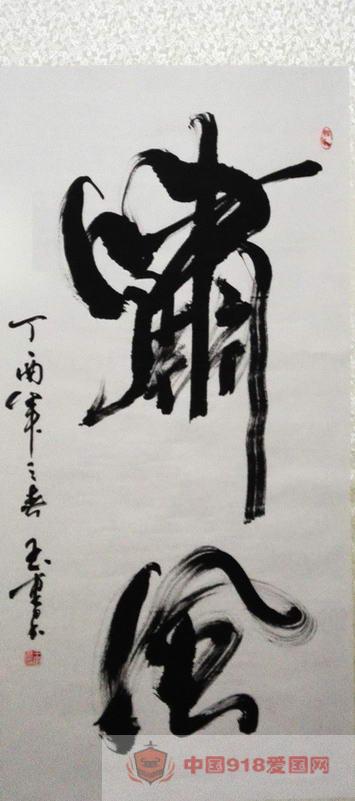 嘯風
丁酉年之春 玉書
中国918爱国网